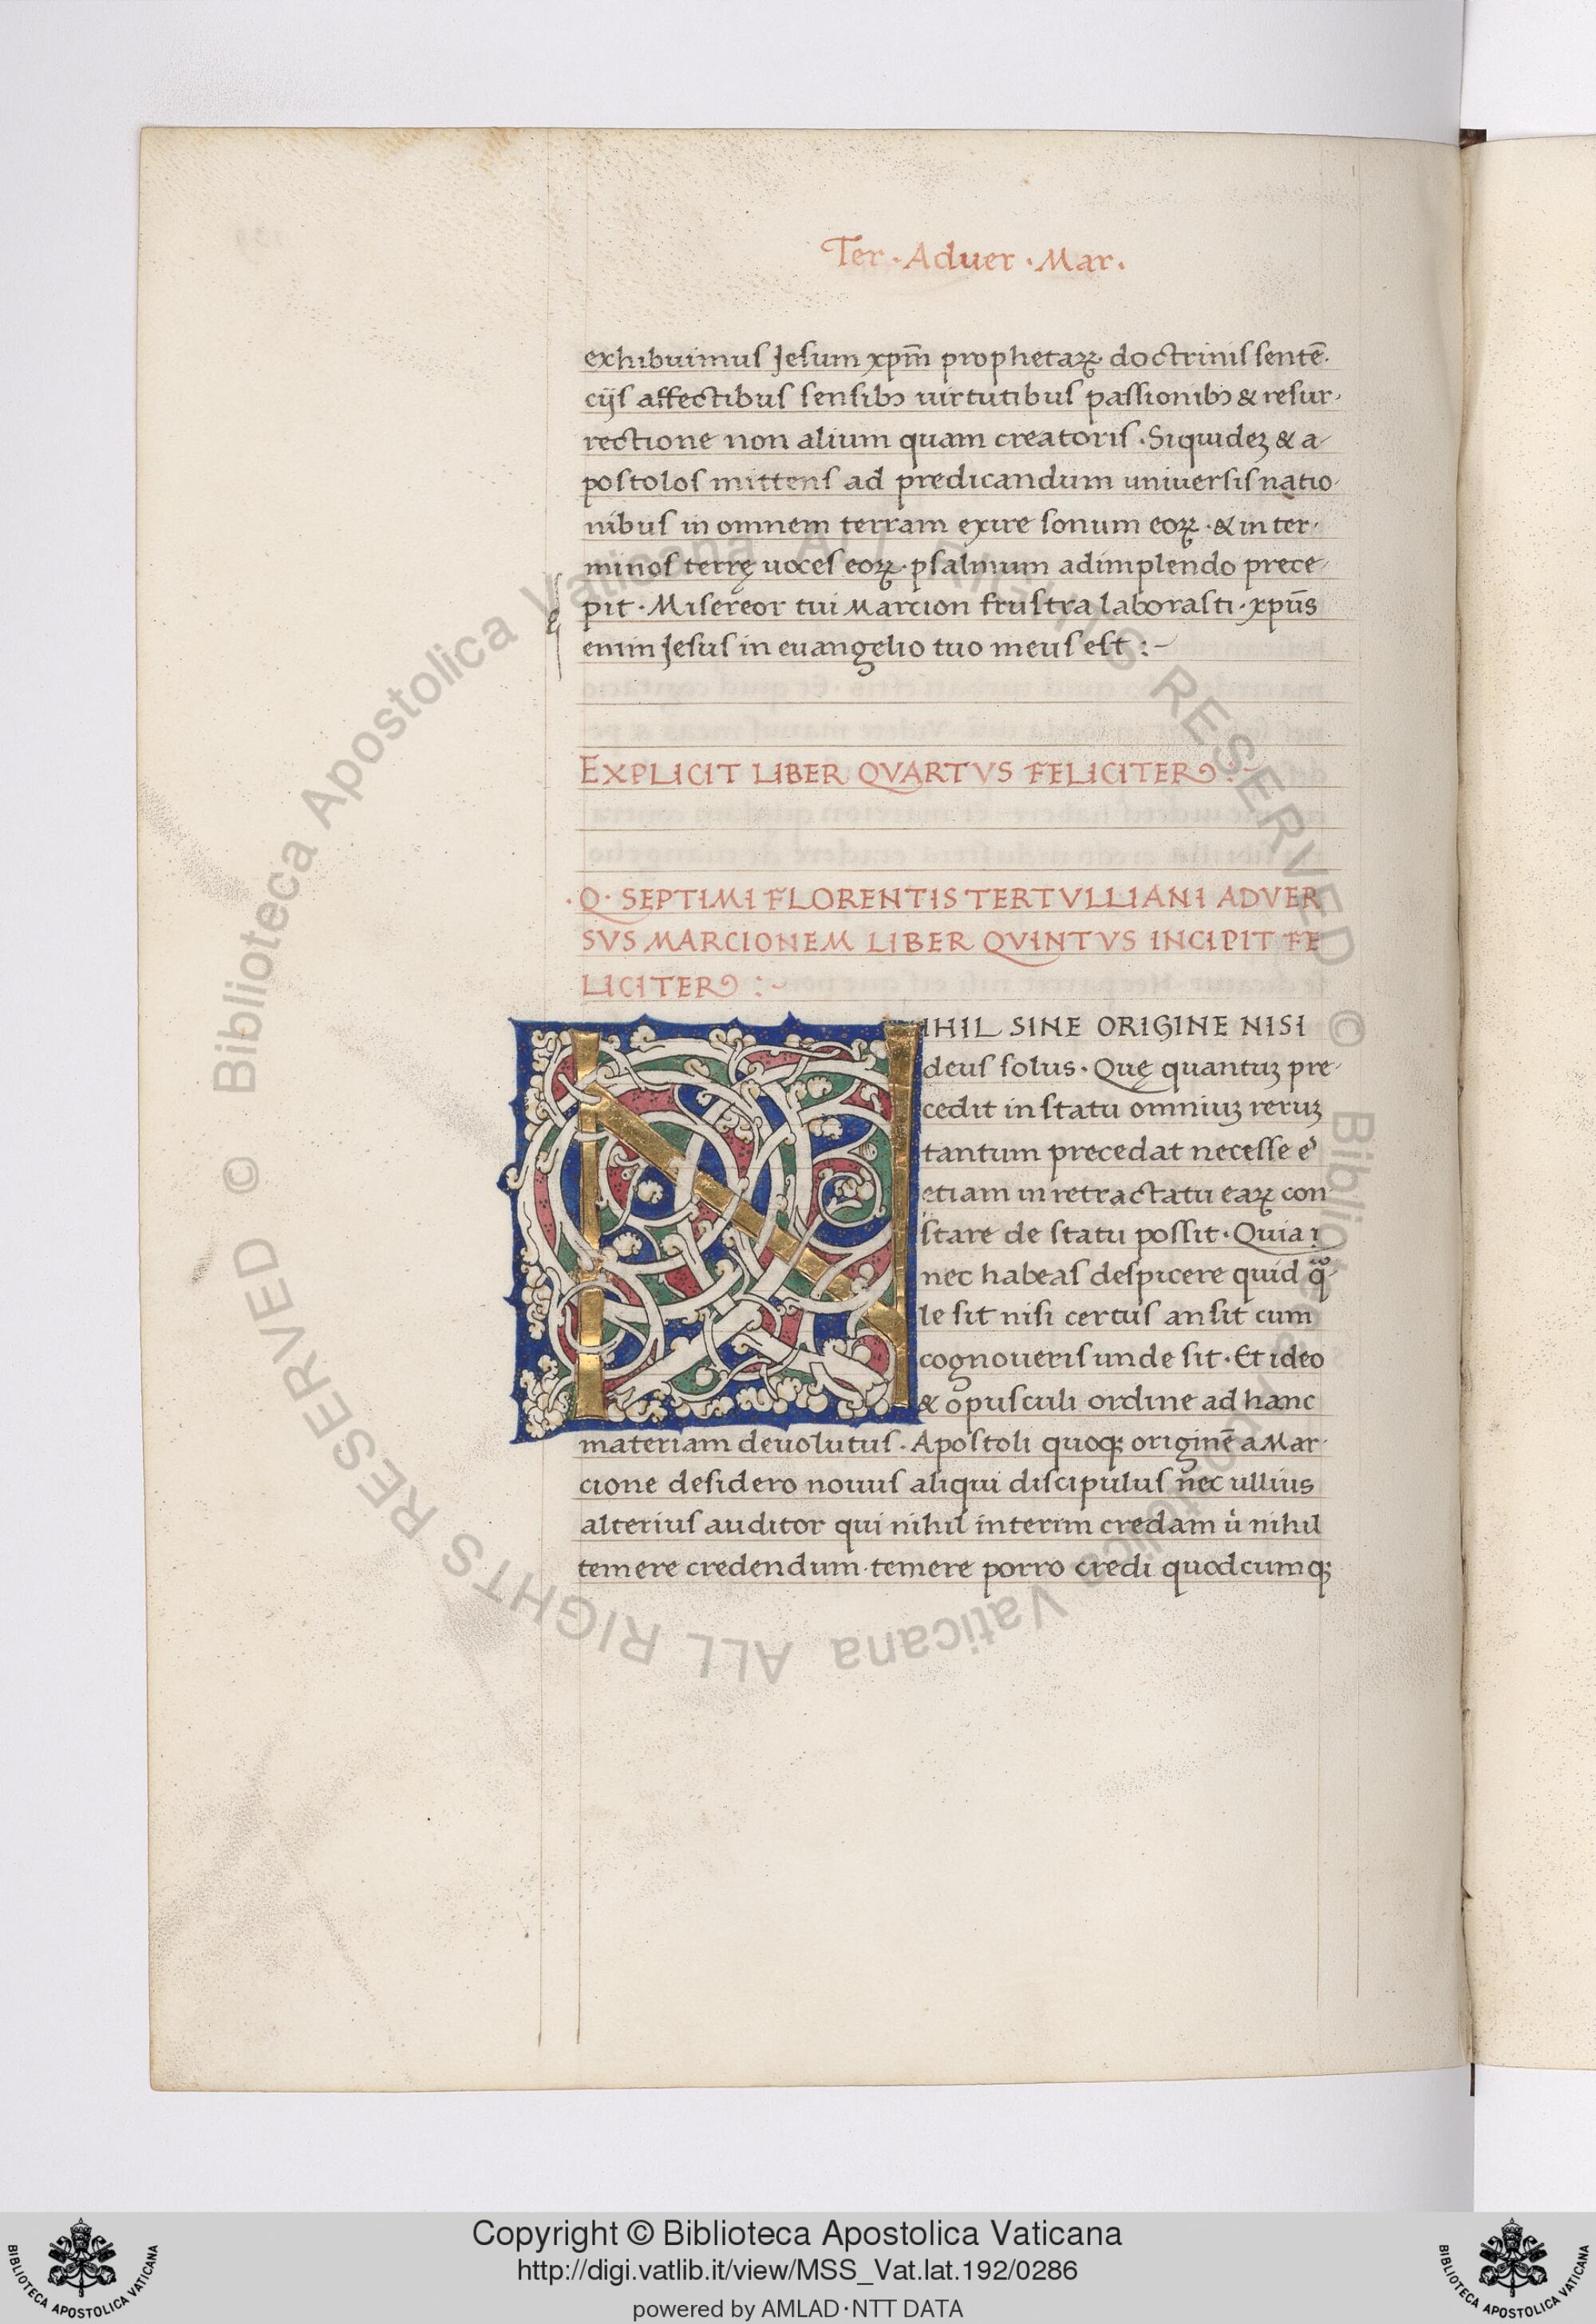 Ter · Aduer · Mar ·
exhibuimus Jesum xpm̄ prophetaꝝ· doctrinis sentē·
cijs affectibus sensibꝯ uirtutibus passionibꝯ & resur·
rectione non alium quam creatoris · Siquideꝫ & a·
postolos mittens ad predicandum uniuersis natio·
nibus in omnem terram exire sonum eoꝝ · & in ter·
minos terrę uoces eoꝝ · psalmum adimplendo prece·
pit · Misereor tui Marcion frustra laborasti · xpūs
enim Jesus in euangelio tuo meus est :~
EXPLICIT LIBER QVARTVS FELICITER :~
· Q · SEPTIMI FLORENTIS TERTVLLIANI ADVER
SVS MARCIONEM LIBER QVINTVS INCIPIT FE
LICITER :~
NIHIL SINE ORIGINE NISI
deus solus · Quę quantuꝫ pre·
cedit in statu omniuꝫ reruꝫ
tantum precedat necesse ē
etiam in retractatu eaꝝ con
stare de statu possit · Quia
nec habeas despicere quid q̃·
le sit nisi certus an sit cum
cognoueris unde sit · Et ideo
& opusculi ordine ad hanc
materiam deuolutus · Apostoli quoqꝫ originē a Mar·
cione desidero nouus aliqui discipulus nec ullius
alterius auditor qui nihil interim credam ù nihil
temere credendum · temere porro credi quodcumqꝫ
© Biblioteca Apostolica Vaticana ALL RIGHTS RESERVED © Biblioteca Apostolica Vaticana ALL RIGHTS RESERVED
Copyright © Biblioteca Apostolica Vaticana
http://digi.vatlib.it/view/MSS_Vat.lat.192/0286
powered by AMLAD·NTT DATA
BIBLIOTECA APOSTOLICA VATICANA
BIBLIOTECA APOSTOLICA VATICANA